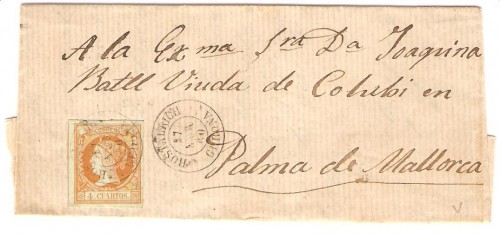 A la Exma Sra Da Joaquina
Batll Viuda de Colubi en
Palma de Mallorca
HOSTALRICH
17
60
4 CUARTOS